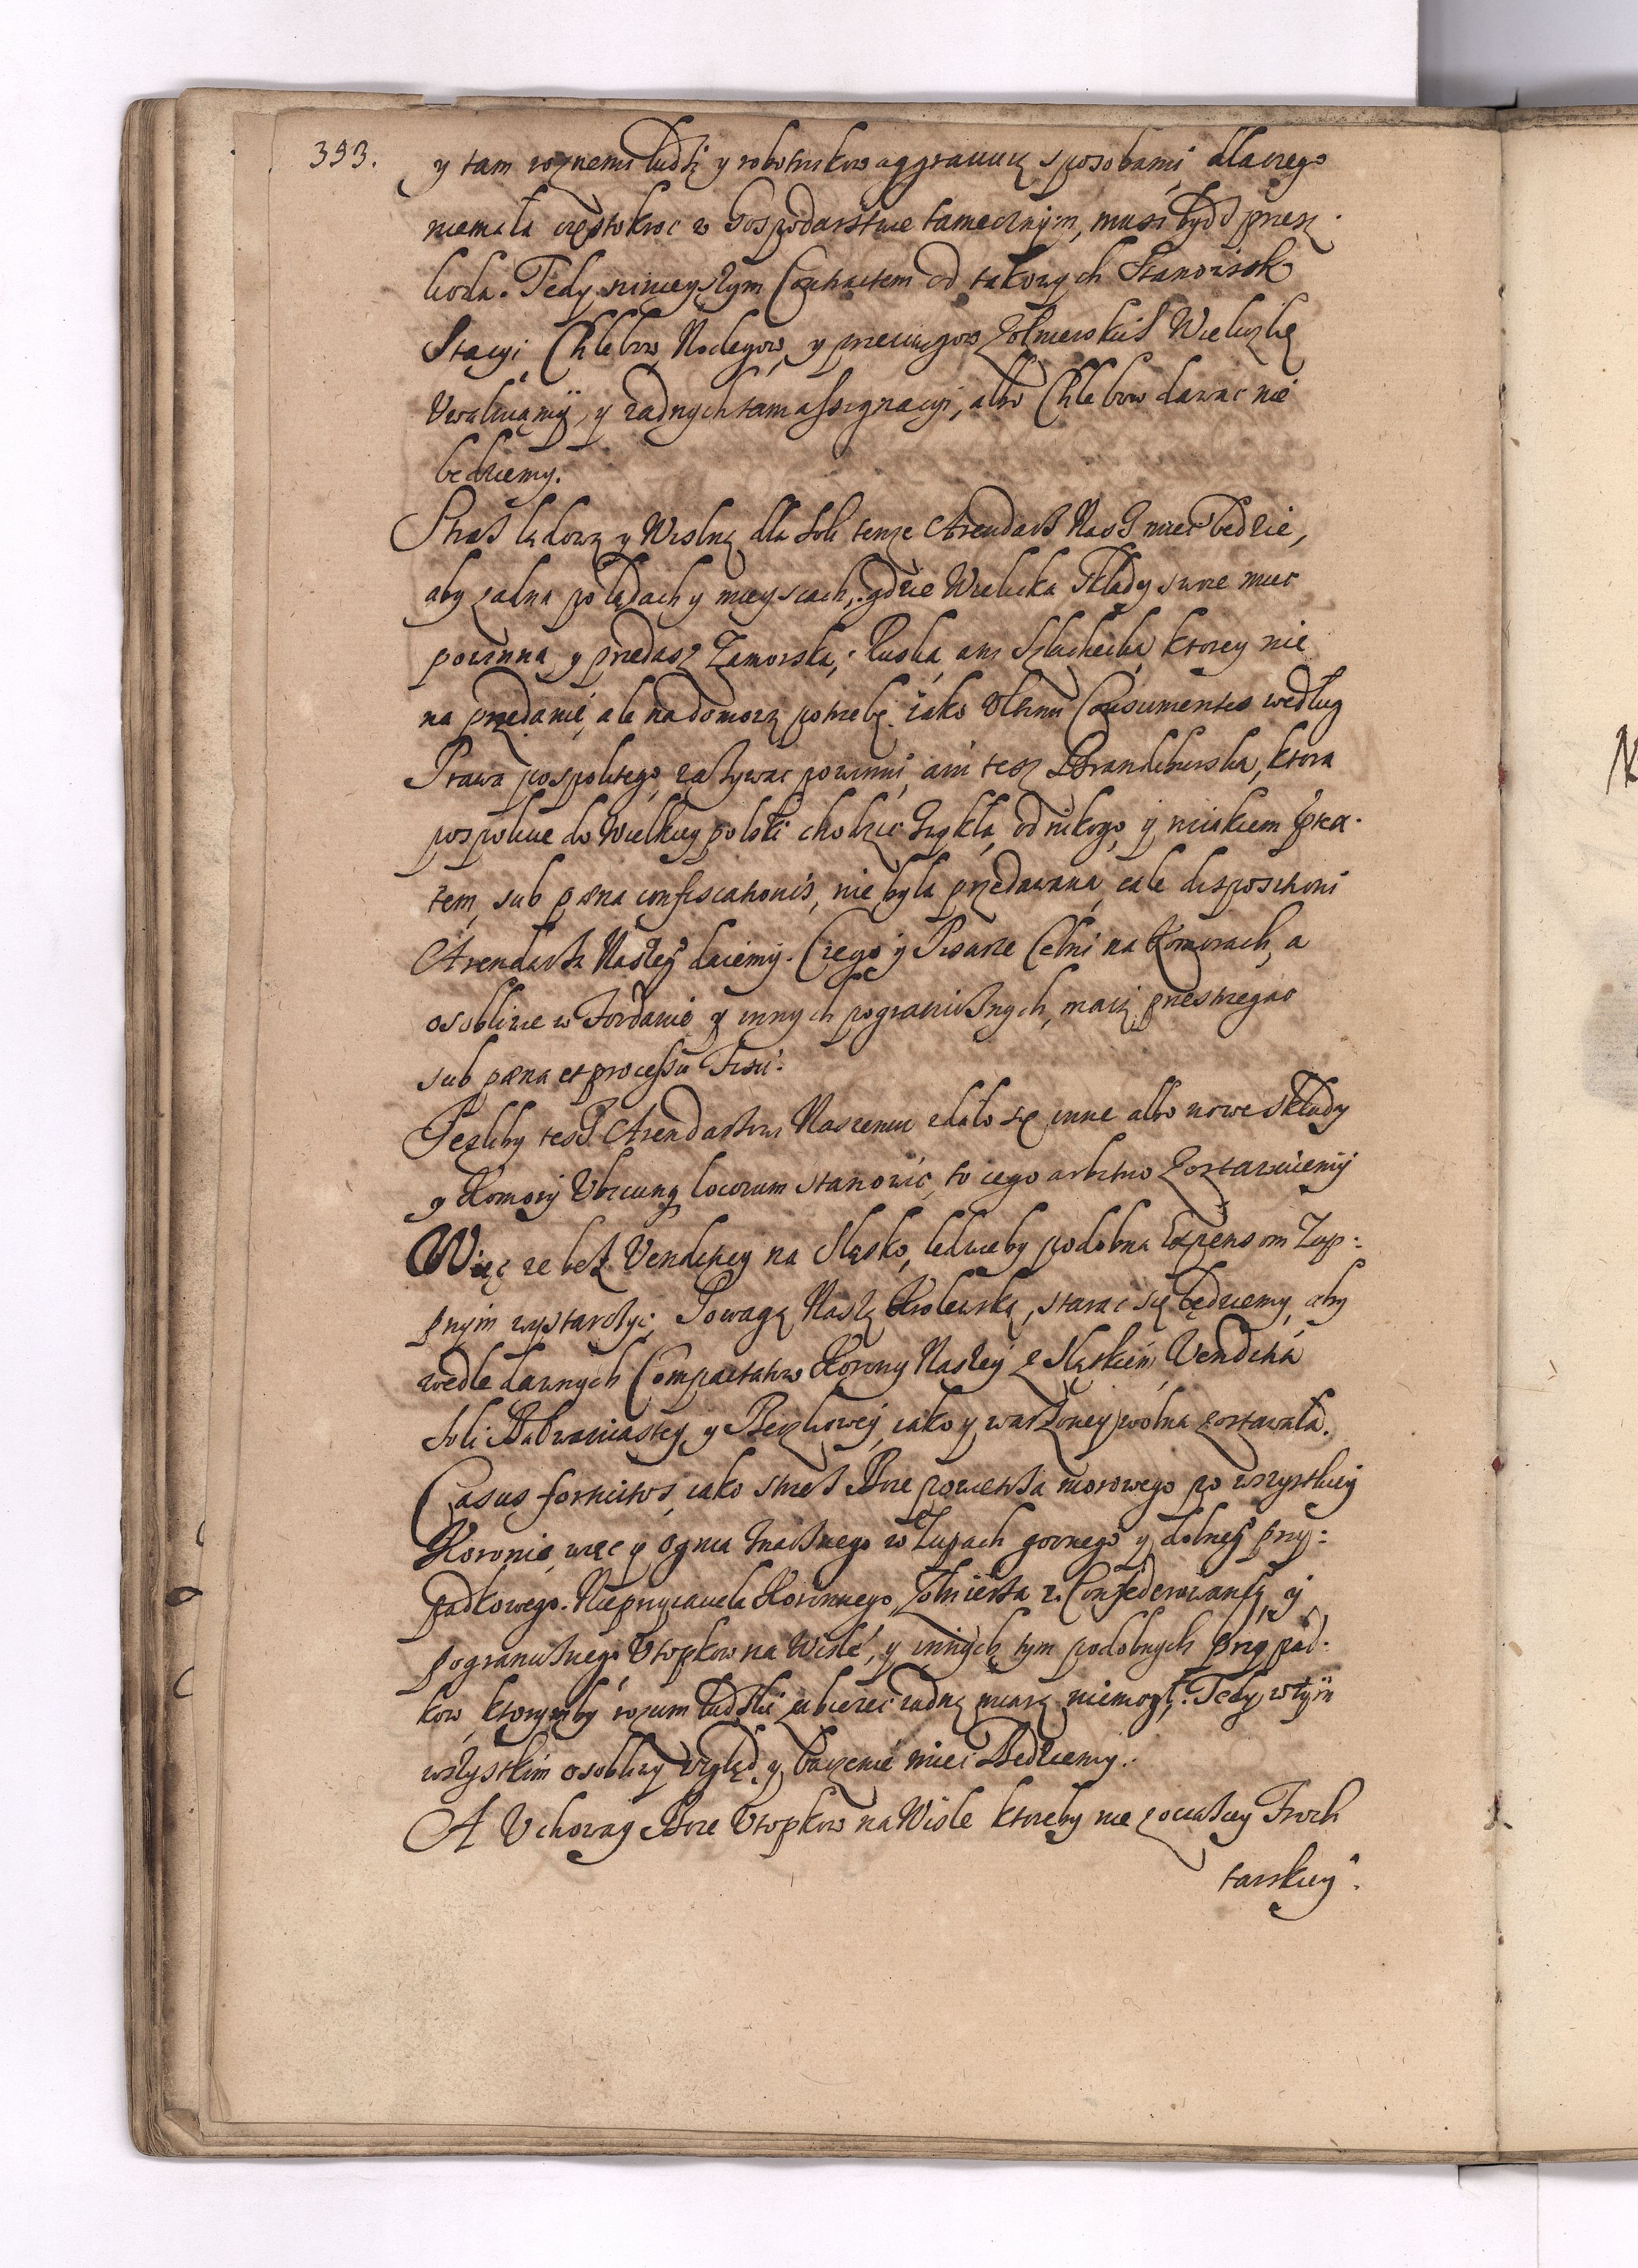 393.
y tam roznemi ludzi y robotnikow aggrauuią sposobami, dlaczego
niemała częstokroc w Gospodarstwie tamecznym, musi bydź przesz
koda. Tedy ninieyszym Contractem od takowych Stanowisk
Stacyi, Chlebow, Noclegow, y przeciągow Zołnierskich Wieliczkę
Uwalniamy, y zadnych tam assignacyi, albo Chlebow dawac nie
będziemy.
Straż lądową y Wislną dla Soli tenze Arendarz Nasz miec będzie,
aby zadna po lądach y mieyscach, gdzie Wielicka składy swoie miec
powinna, y przedasz Zamorska, Ruska, ani Szlachecka, ktorey nie
na przedanie, ale na domową potrzebę iako Ultimi Consumentes według
Prawa pospolitego, zażywac powinni, ani tesz Brandeburska, ktora
pospolicie do Wielkiey polski chodzic zwykła, od nikogo, y nijakiem prae
tem, sub pæna confiscationis, nie była przedawana, cale disposicioni
Arendarza Naszego daiemy. Czego y Pisarze Celni na Komorach, a
osobliwie w Fordanie y innych pogranicznych, maią przestrzegac
sub pæna et processu Fisci.
Jezliby tesz Arendarzowi Naszemu zdało się inne albo nowe składy
y Komory Vbicunq locorum stanowic, to iego arbitrio Zostawuiemy
Więc ze bez Venditiey na Sląsko, ledwieby podobna Expensom Zup:
pnym wystarczyc, Powagą Naszą Krolewską, starac się będziemy, aby
wedle dawnych Compactatow Korony Naszey z Sląskiem, Venditia
Soli Bałwaniastey, y Beczkowey, iako y warzoney wolna zostawała.
Casus fortuitos, iako strzeż Boze powietrza morowego po wszystkiey
Koronie, więc y ognia znacznego w Żupach gornego y dolnego przy:
padkowego. Nieprzyiaciela Koronnego, Zołnierza z. Confederowanego, y
pogranicznego Utopkow na Wisle, y innych tym podobnych przypad
kow, ktorymby rozum ludzki zabiezec zadną miarą niemogł. Tedy w tym
wszystkim osobliwy wzgląd y baczenie miec Będziemy.
A Uchoway Boze Utopkow na Wisle ktoreby nie z oczywistey Froch
tarskiey.